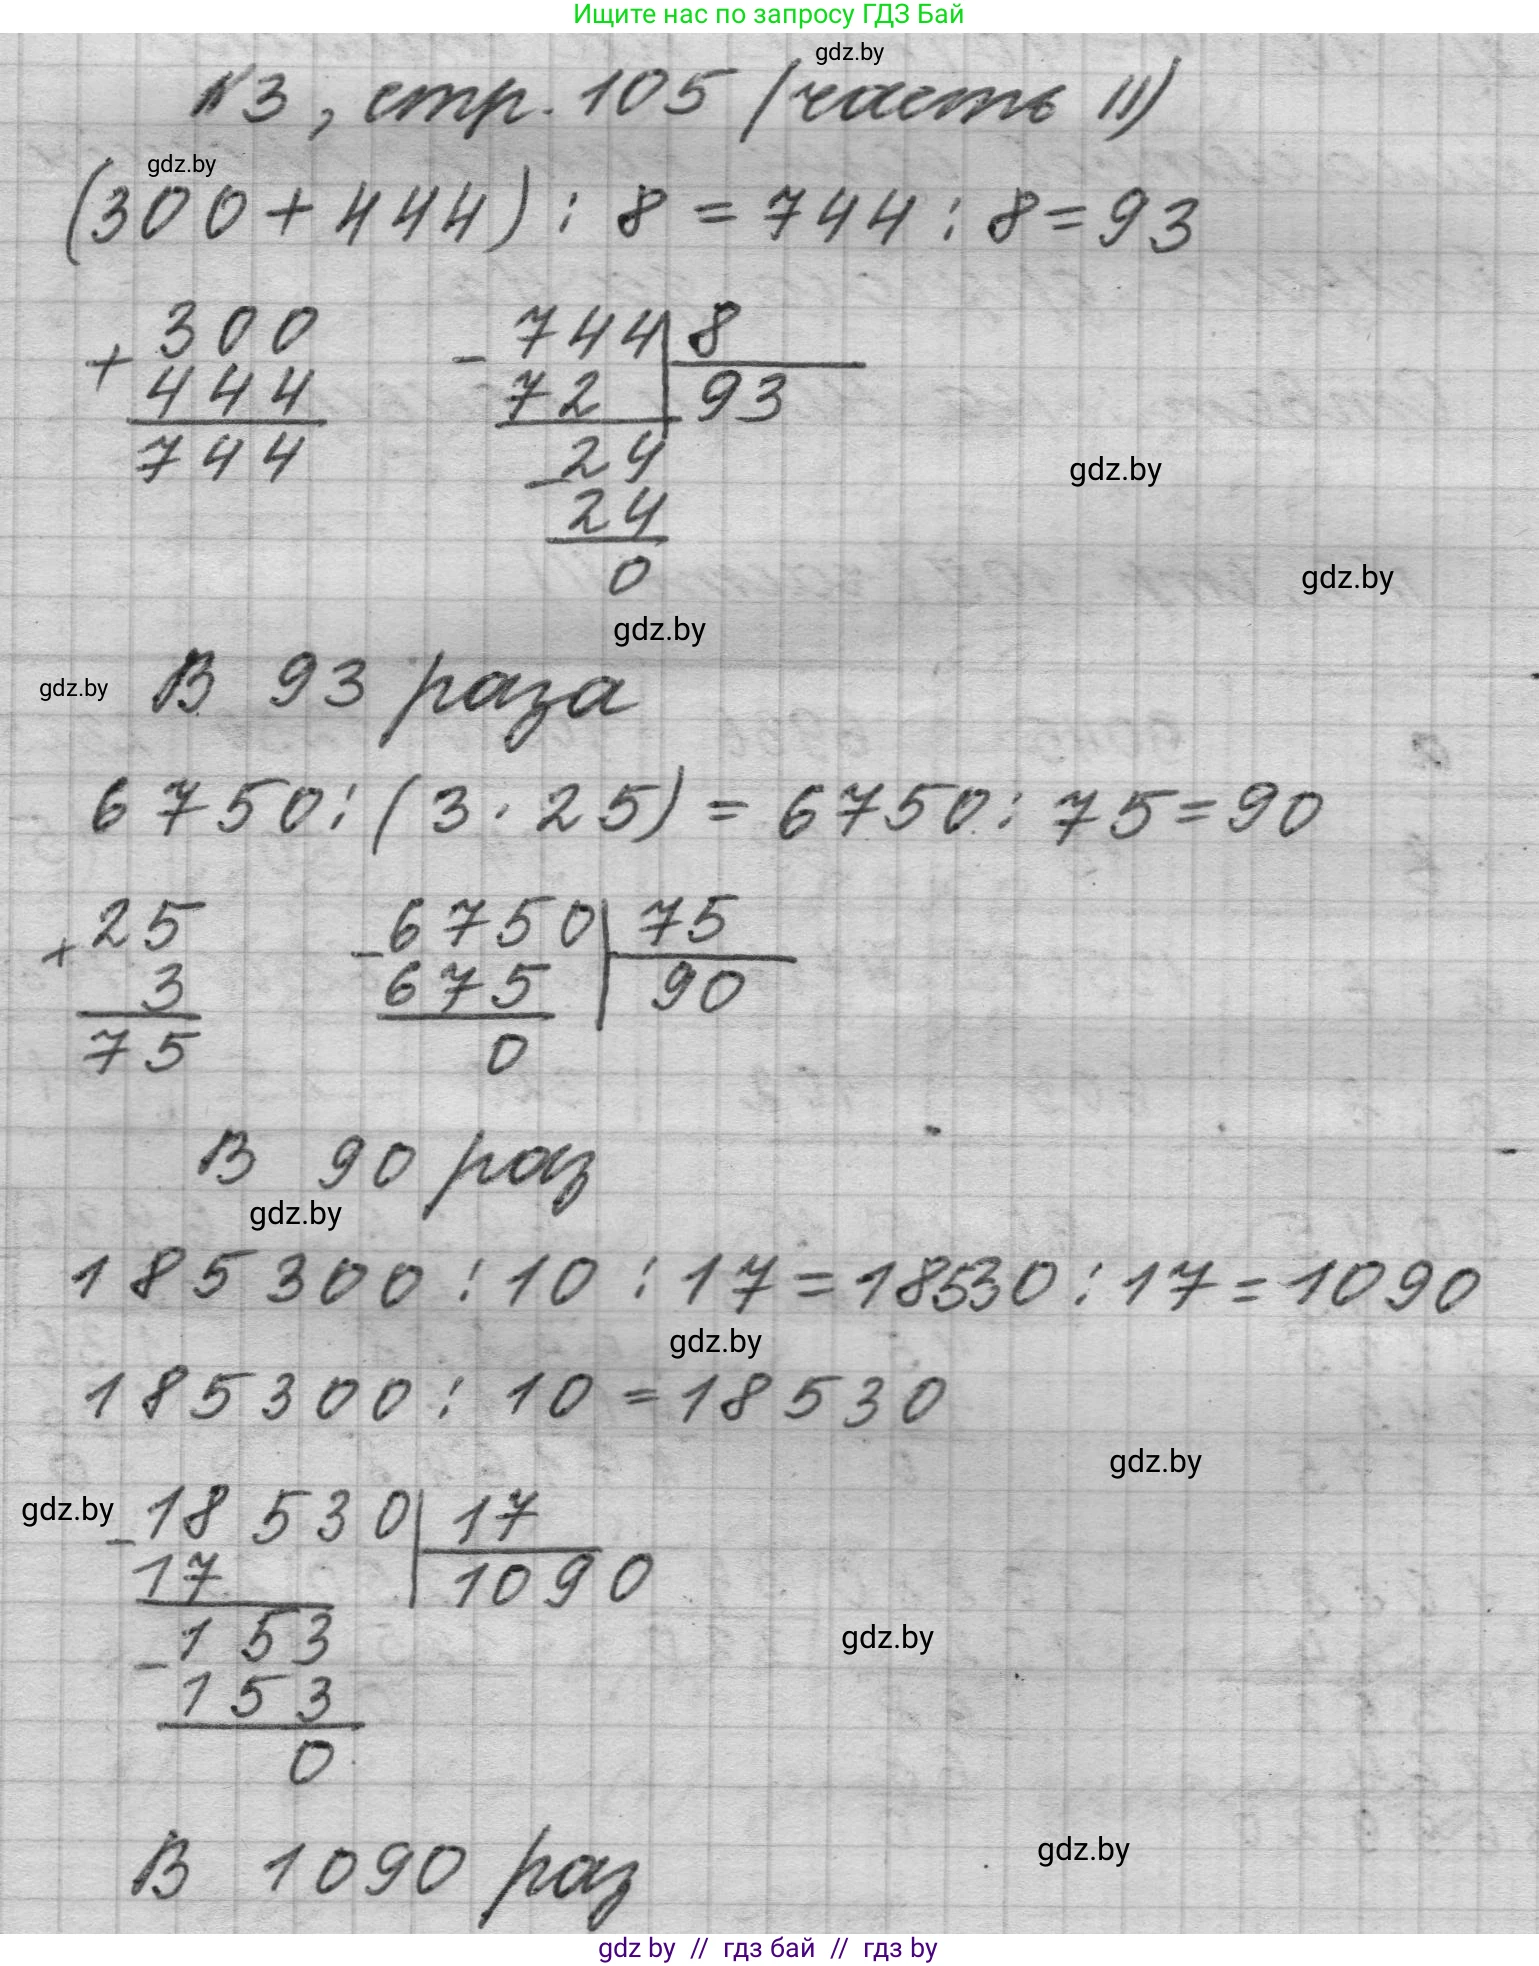 Ищите нас по запросу ГДЗ Бай
gdz.by
№3, стр. 105 (часть II)
gdz.by
(300+444) : 8 = 744 : 8 = 93
300 744 | 8
+ 444 - 72 | 93
744 24
gdz.by
- 24
0
gdz.by
gdz.by
gdz.by
В 93 раза
6750 : (3 · 25) = 6750 : 75 = 90
25 6750 | 75
× 3 - 675 | 90
75 0
В 90 раз
gdz.by
185300 : 10 : 17 = 18530 : 17 = 1090
gdz.by
185300 : 10 = 18530
gdz.by
gdz.by
18530 | 17
- 17 | 1090
153
gdz.by
- 153
0
В 1090 раз
gdz.by
gdz by // гдз бай // гдз by